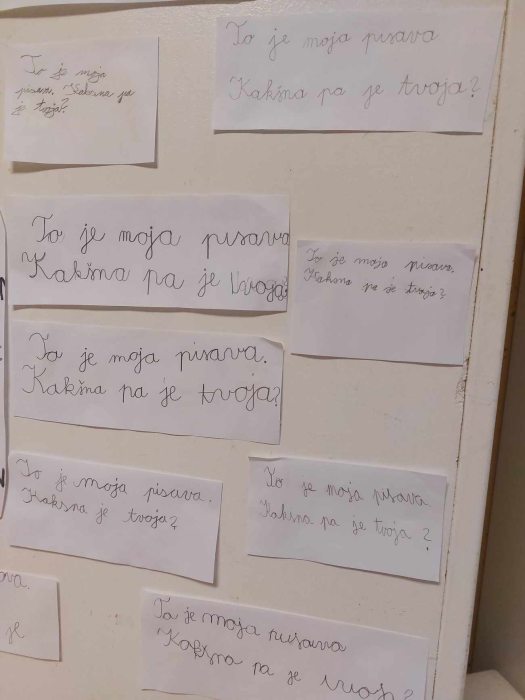 To je moja
pisava. Kakšna pa
je tvoja?
To je moja pisava
Kakšna pa je tvoja?
To je moja pisava
Kakšna pa je tvoja?
To je moja pisava.
Kakšna pa je tvoja?
To je moja pisava.
Kakšna pa je tvoja?
To je moja pisava.
Kakšna je tvoja?
To je moja pisava
Kakšna pa je tvoja?
je
Ta je moja pisava
Kakšna pa je tvoja?